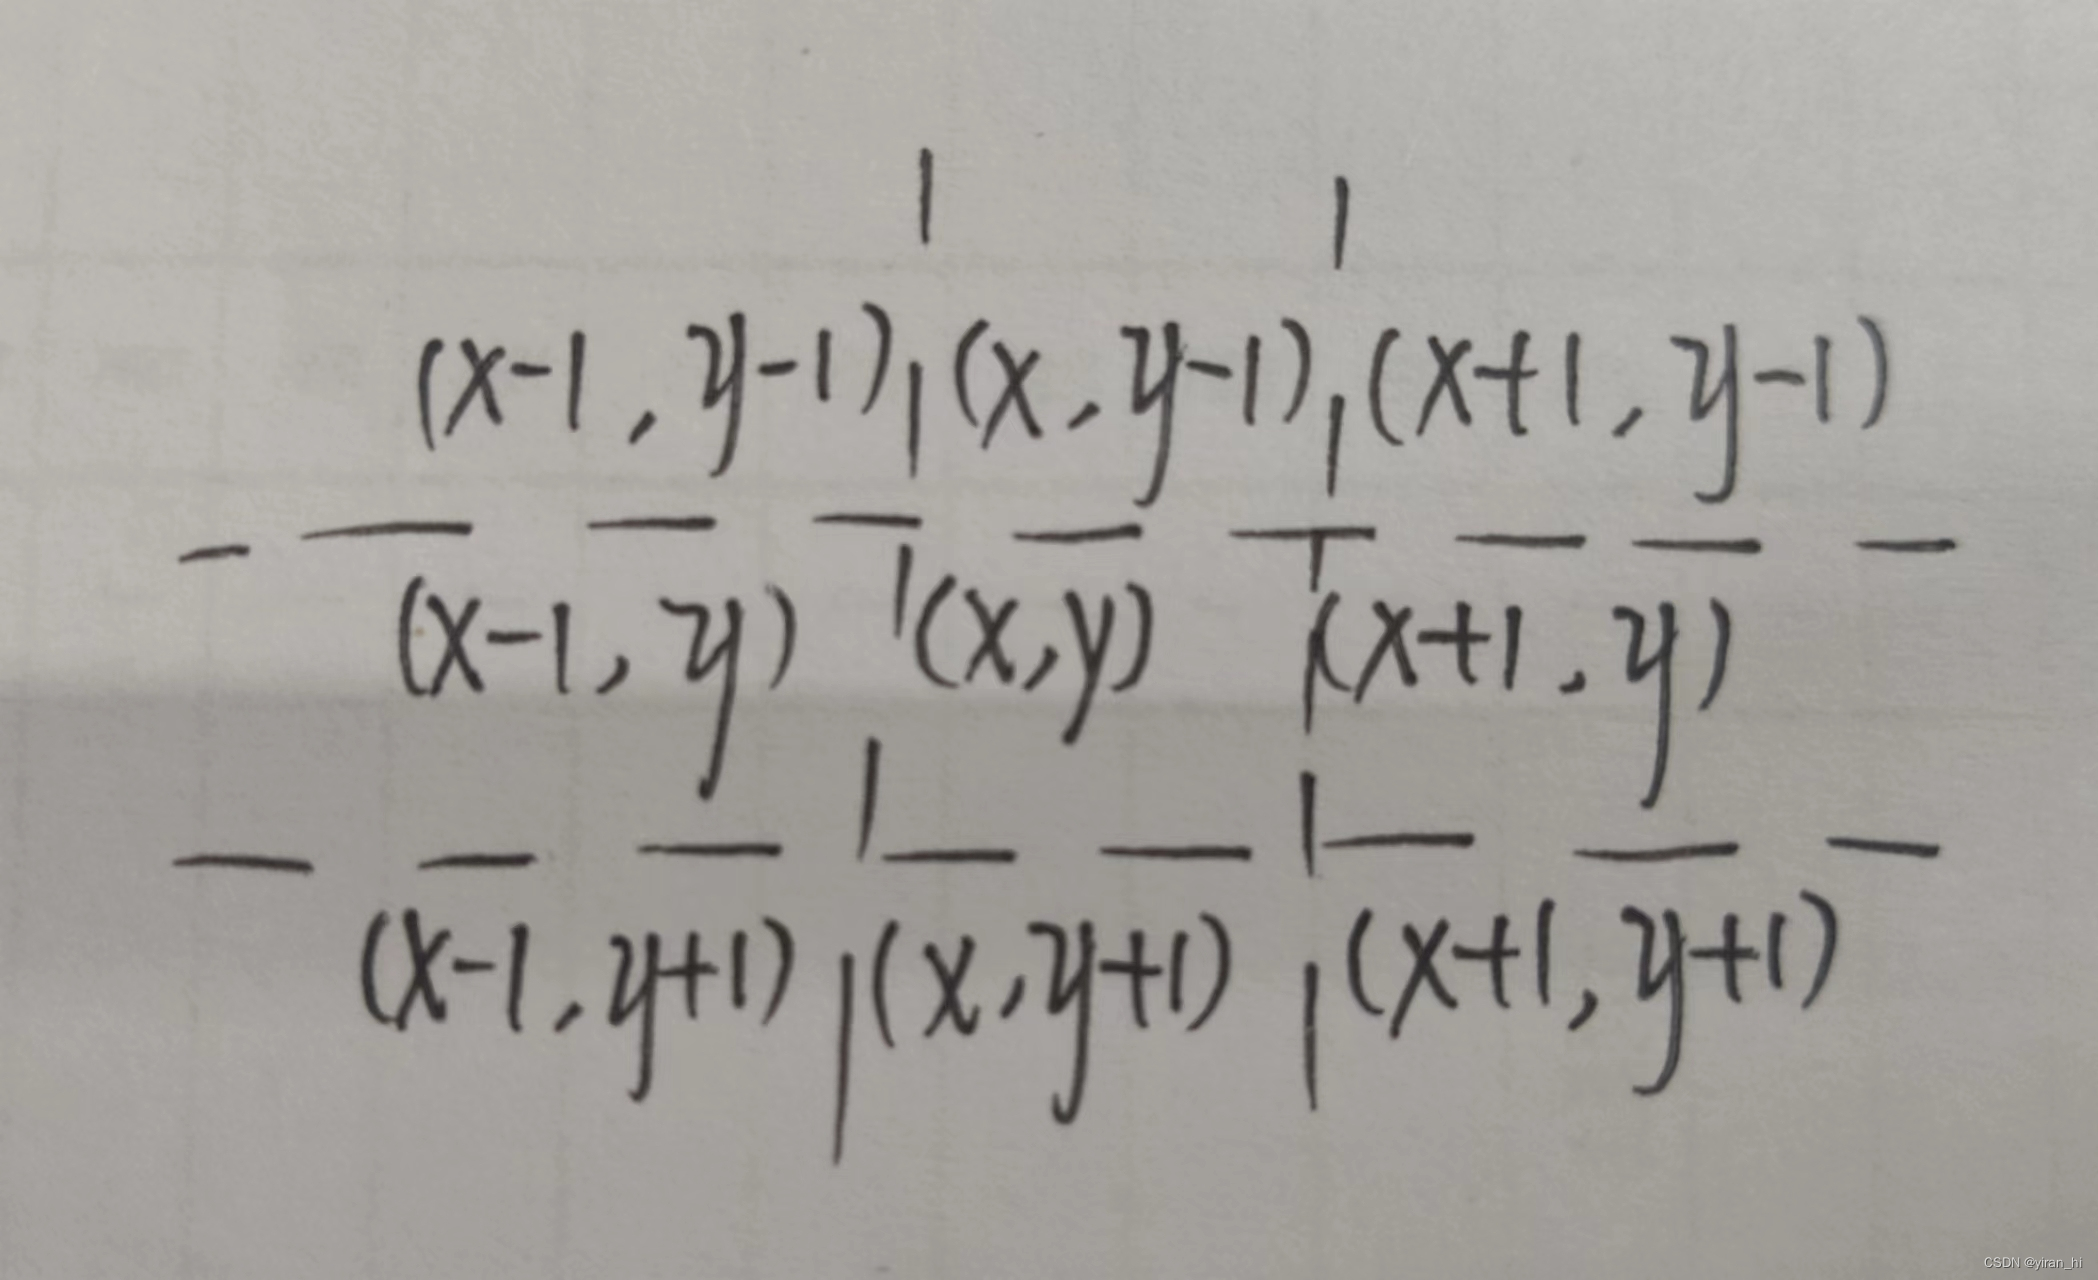 (x-1, y-1) | (x, y-1) | (x+1, y-1)
(x-1, y) | (x,y) | (x+1, y)
(x-1, y+1) | (x, y+1) | (x+1, y+1)
CSDN @yiran_hi